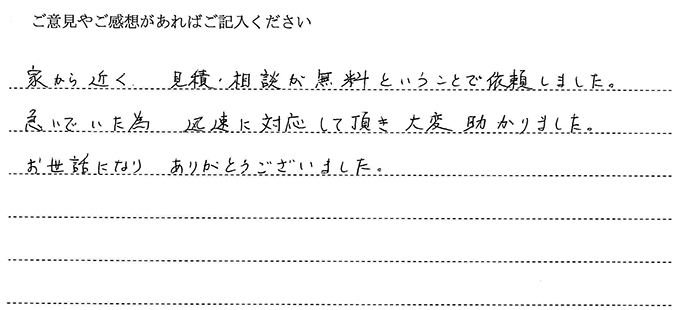 ご意見やご感想があればご記入ください
家から近く 見積・相談が無料ということで依頼しました。
急いでいた為 迅速に対応して頂き 大変 助かりました。
お世話になり ありがとうございました。